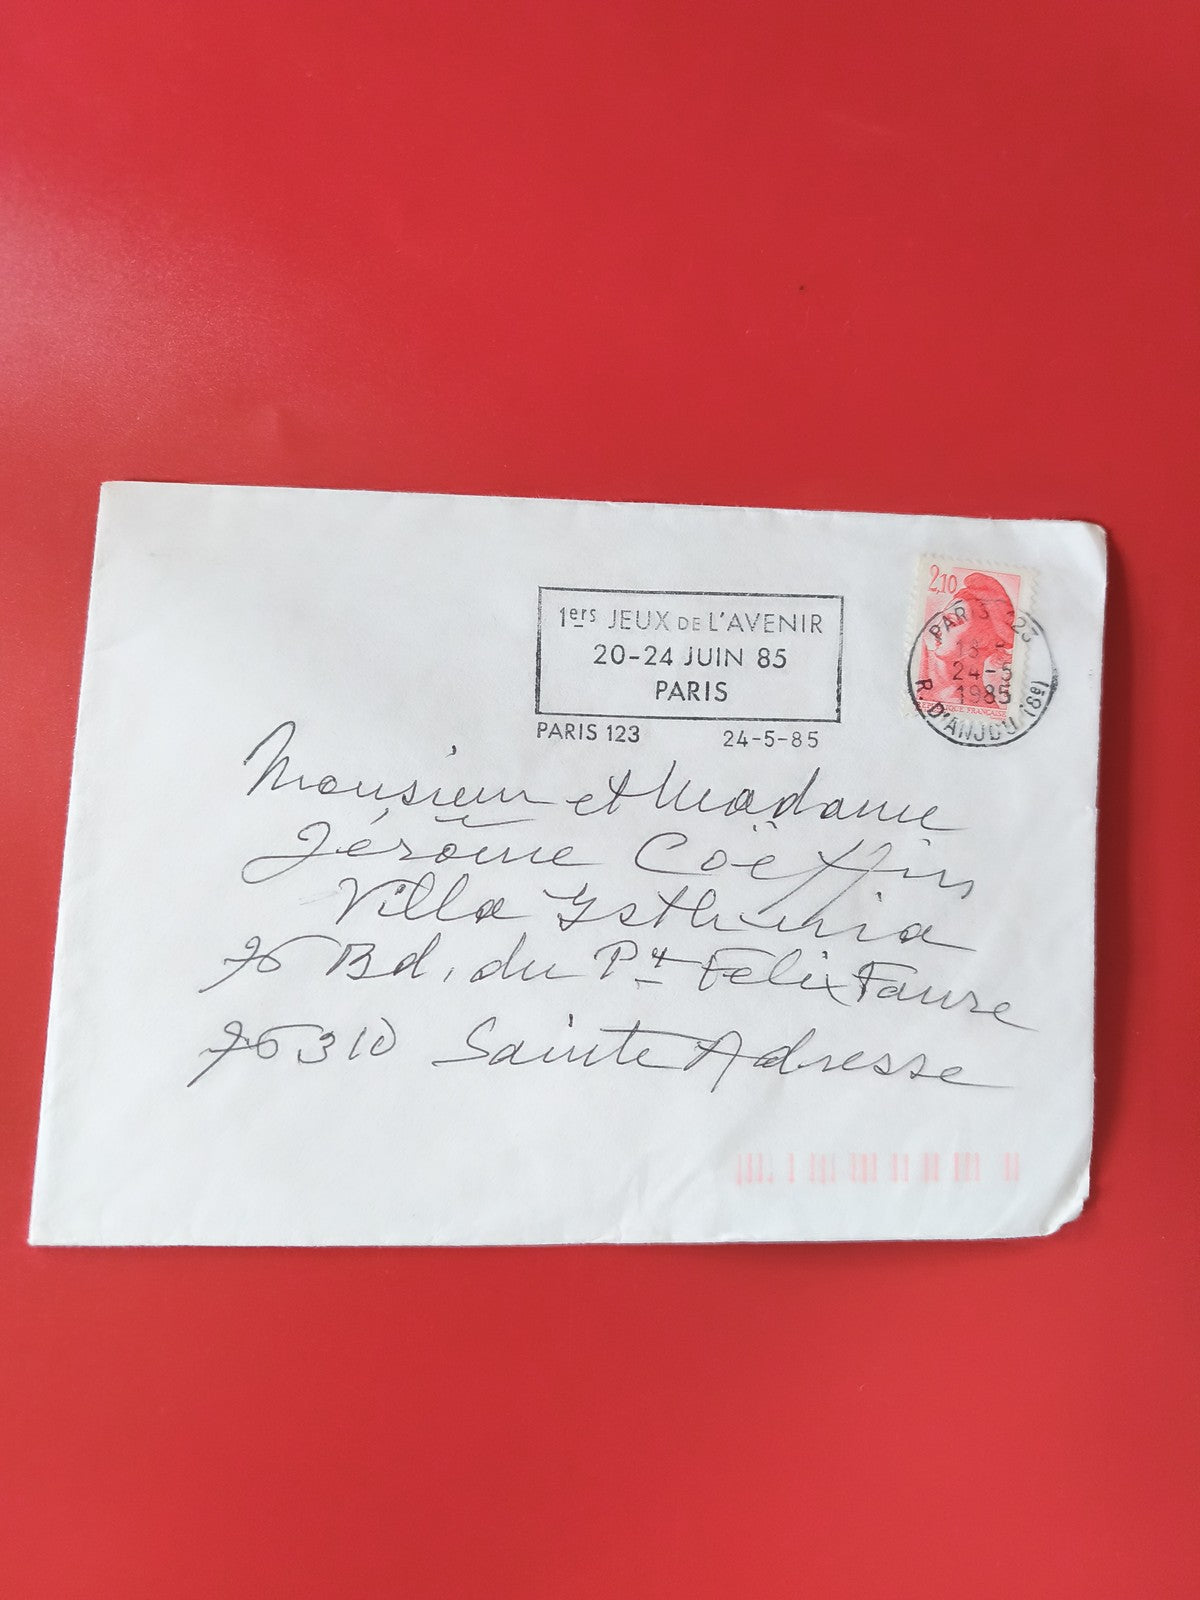 1ers JEUX DE L'AVENIR
20-24 JUIN 85
PARIS
PARIS 123 24-5-85
2,10
PARIS 123
18 -
24-5
1985
R. D'ANJOU (8e)
Monsieur et Madame
Jérôme Coëffin
Villa
76 Bd. du Pt Félix Faure
76310 Sainte Adresse